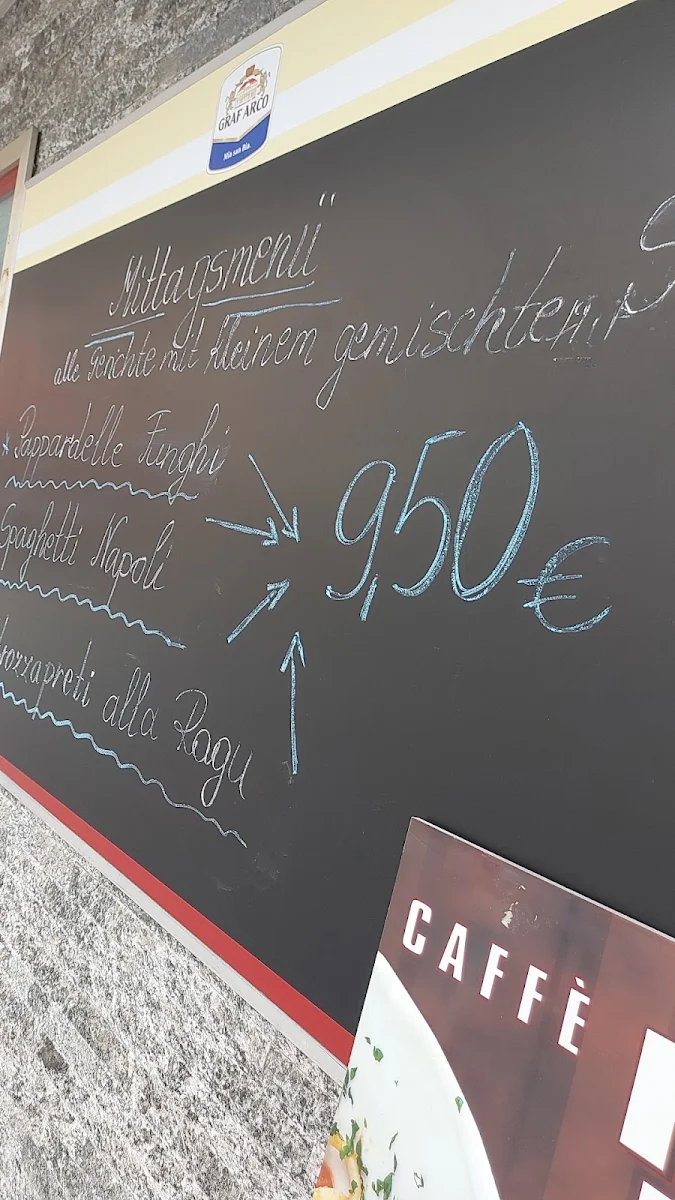 GRAF ARCO
Mia san Bia.
Mittagsmenü"
alle Gerichte mit kleinem gemischten
Pappardelle Funghi
Spaghetti Napoli
9,50 €
alla Ragu
CAFFÈ